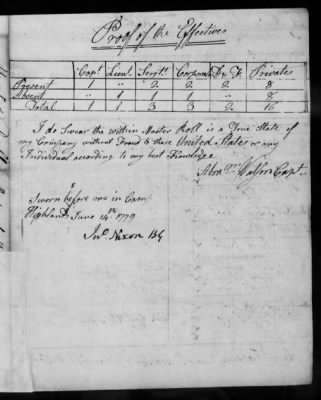 Proof of the Effectives
Capt Lieut Serjts Corporals Dr F. Privates
Present 1 " 2 2 2 8
Absent " 1 1 1 " 8
Total 1 1 3 3 2 16
I do Swear the within Muster Roll is a True State of
my Company without Fraud to these United States or any
Individual according to my best Knowledge
Abrm Watson Capt
Sworn before me in Camp
Highlands June 14th 1779
Jno Nixon BG